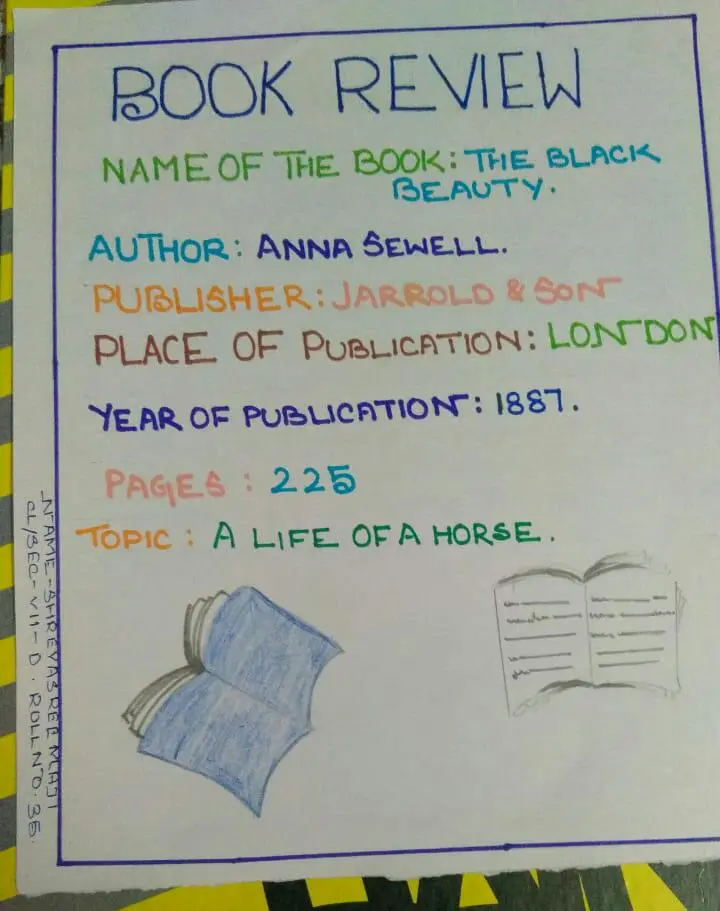 BOOK REVIEW
NAME OF THE BOOK: THE BLACK
BEAUTY.
AUTHOR: ANNA SEWELL.
PUBLISHER: JARROLD & SON
PLACE OF PUBLICATION: LONDON
YEAR OF PUBLICATION: 1887.
PAGES: 225
TOPIC: A LIFE OF A HORSE.
NAME-SHREYASREE MAJI
CL/SEC-VII-D. ROLL NO. 36.